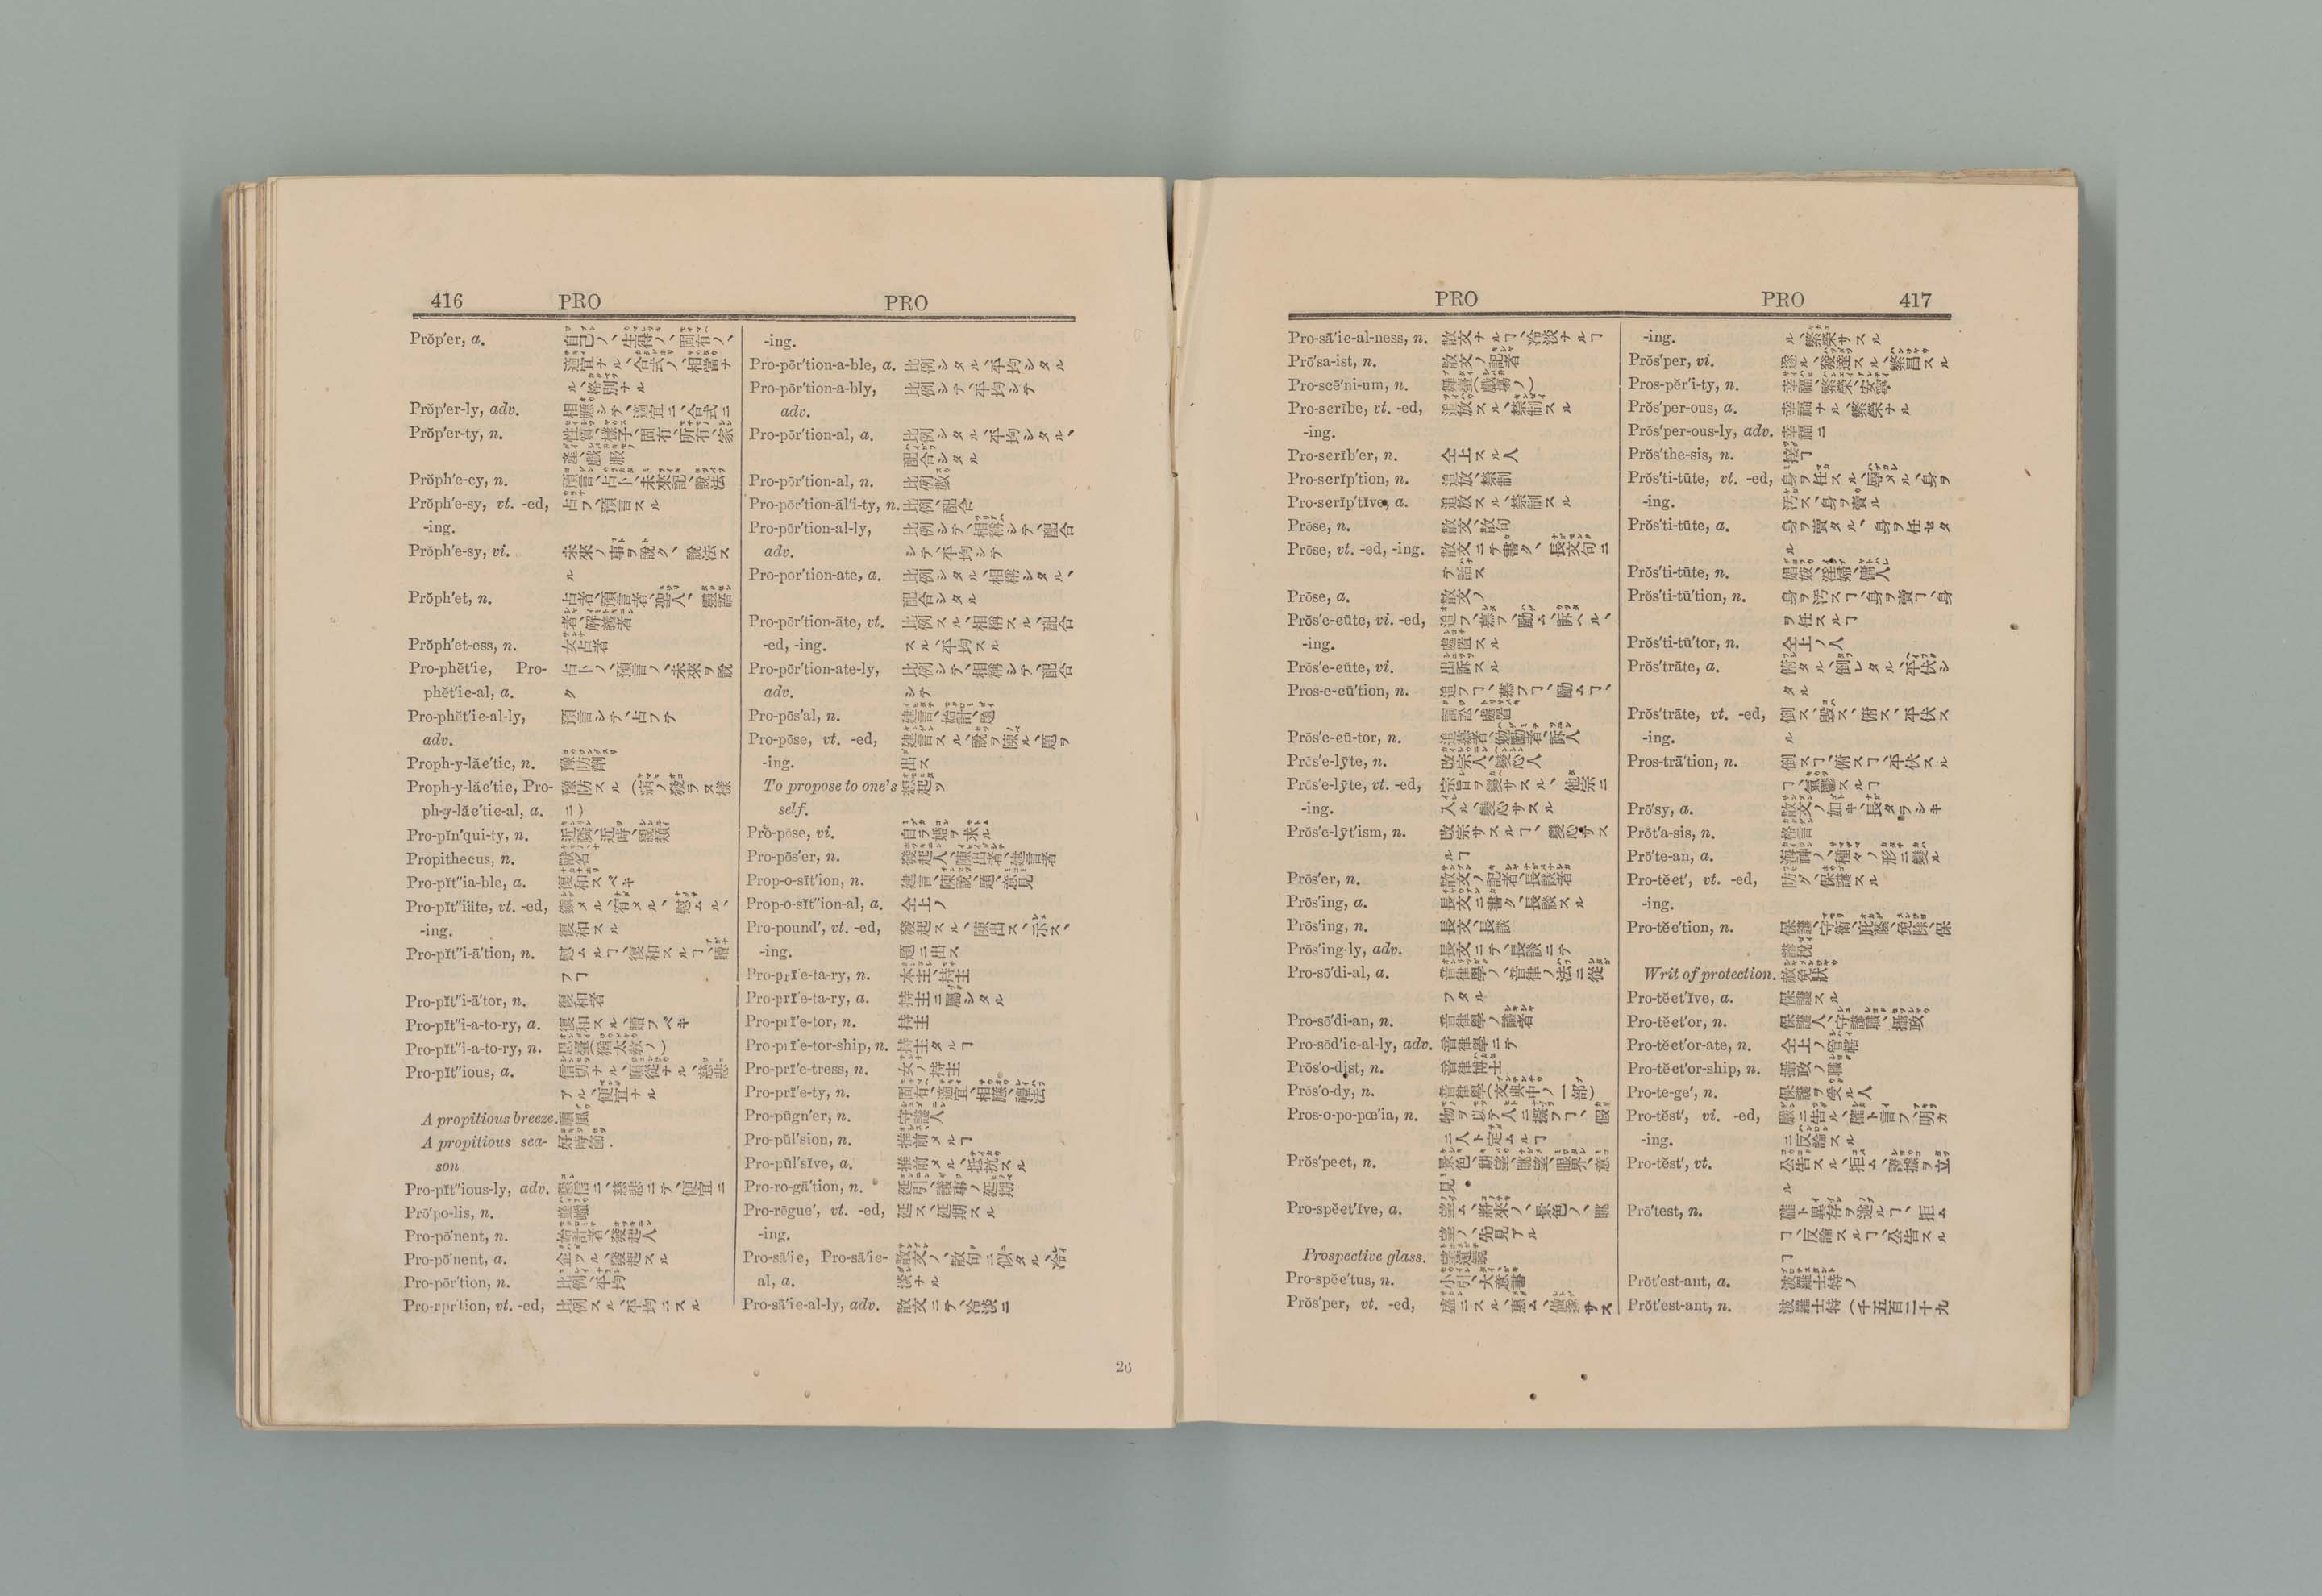 416 PRO PRO
Prŏp′er, a. 自己ノ、生得ノ、固有ノ、
適宜ナル、合式ノ、相當ナ
ル、格別ナル
Prŏp′er-ly, adv. 相應シテ、適宜ニ、合式ニ
Prŏp′er-ty, n. 性質、樣子、固有、所有、家
產、戲服
Prŏph′e-cy, n. 預言、占卜、未來記、說法
Prŏph′e-sy, vt. -ed, 占フ、預言スル
-ing.
Prŏph′e-sy, vi. 未來ノ事ヲ說ク、說法ス
ル
Prŏph′et, n. 占者、預言者、聖人、
者、解義者
Prŏph′et-ess, n. 女占者
Pro-phĕt′ie, Pro- 占卜ノ、預言ノ、未來ヲ說
phĕt′ie-al, a. ク
Pro-phĕt′ie-al-ly, 預言シテ、占フテ
adv.
Proph-y-lăe′tic, n. 豫防劑
Proph-y-lăe′tie, Pro- 豫防スル (病ノ發ヲヌ樣
ph-y-lăe′tie-al, a. ニ)
Pro-pĭn′qui-ty, n. 近隣、近時、親類
Propithecus, n. 獸名
Pro-pĭt″ia-ble, a. 復和スベキ
Pro-pĭt″iāte, vt. -ed, 鎭メル、宥メル、慰ムル、
-ing. 復和スル
Pro-pĭt″i-ā′tion, n. 慰ムルヿ、復和スルヿ、贖
フヿ
Pro-pĭt″i-ā′tor, n. 復和者
Pro-pĭt″i-a-to-ry, a. 復和スル、贖フベキ
Pro-pĭt″i-a-to-ry, n. 恩蓋(猶太敎ノ)
Pro-pĭt″ious, a. 信切ナル、順從ナル、慈悲
アル、便宜ナル
A propitious breeze. 順風
A propitious sea- 好時節.
son
Pro-pĭt″ious-ly, adv. 懇信ニ、慈悲ニテ、便宜ニ
Prō′po-lis, n. 蜂蠟
Pro-pō′nent, n. 始計者、發起人
Pro-pō′nent, a. 企ツル、發起スル
Pro-pōr′tion, n. 比例、平均
Pro-rpr′tion, vt. -ed, 比例スル、平均ニスル
-ing.
Pro-pōr′tion-a-ble, a. 比例シタル、平均シタル
Pro-pōr′tion-a-bly, 比例シテ、平均シテ
adv.
Pro-pōr′tion-al, a. 比例シタル、平均シタル、
配合シタル
Pro-pōr′tion-al, n. 比例數
Pro-pōr′tion-ăl′i-ty, n. 比例、配合
Pro-pōr′tion-al-ly, 比例シテ、相稱シテ、配合
adv. シテ、平均シテ
Pro-por′tion-ate, a. 比例シタル、相稱シタル、
配合シタル
Pro-pōr′tion-āte, vt. 比例スル、相稱スル、配合
-ed, -ing. スル、平均スル
Pro-pōr′tion-ate-ly, 比例シテ、相稱シテ、配合
adv. シテ
Pro-pōs′al, n. 建言、始計、題
Pro-pōse, vt. -ed, 建言スル、說ヲ陳ル、題ヲ
-ing. 出ス
To propose to one's 想起ツ
self.
Pro-pōse, vi. 自ヲ婚ヲ求ル
Pro-pōs′er, n. 發起人、陳出者、建言者
Prop-o-sĭt′ion, n. 建言、陳說、題、意見
Prop-o-sĭt″ion-al, a. 仝上ノ
Pro-pound′, vt. -ed, 發起スル、陳出ス、示ス、
-ing. 題ニ出ス
Pro-prī′e-ta-ry, n. 本主、持主
Pro-prī′e-ta-ry, a. 持主ニ屬シタル
Pro-prī′e-tor, n. 持主
Pro-prī′e-tor-ship, n. 持主タルヿ
Pro-prī′e-tress, n. 女ノ持主
Pro-prī′e-ty, n. 固有、適宜、相應、禮法
Pro-pūgn′er, n. 守護人
Pro-pŭl′sion, n. 推前メルヿ
Pro-pŭl′sĭve, a. 推前メル、抵抗スル
Pro-ro-gā′tion, n. 延引、議事ノ延期
Pro-rōgue′, vt. -ed, 延ス、延期スル
-ing.
Pro-sā′ie, Pro-sā′ie- 散文ノ、散句ニ似タル、冷
al, a. 淡ナル
Pro-sā′ie-al-ly, adv. 散文ニテ、冷淡ニ
26
PRO PRO 417
Pro-sā′ie-al-ness, n. 散文ナルヿ、冷淡ナルヿ
Prō′sa-ist, n. 散文ノ記者
Pro-scē′ni-um, n. 舞臺(戲場ノ)
Pro-serībe, vt. -ed, 追放スル、禁制スル
-ing.
Pro-serīb′er, n. 仝上スル人
Pro-serĭp′tion, n. 追放、禁制
Pro-serĭp′tĭve, a. 追放スル、禁制スル
Prōse, n. 散文、散句
Prōse, vt. -ed, -ing. 散文ニテ書ク、長文句ニ
テ話ス
Prōse, a. 散文ノ
Prŏs′e-eūte, vi. -ed, 追フ、慕フ、勵ム、訴ヘル、
-ing. 處置スル
Prŏs′e-eūte, vi. 出訴スル
Pros-e-eū′tion, n. 追フヿ、慕フヿ、勵ムヿ、
詞訟、處置
Prŏs′e-eū-tor, n. 追慕者、勉勵者、訴人
Prŏs′e-lȳte, n. 改宗人、變心人
Prŏs′e-lȳte, vt. -ed, 宗旨ヲ變サスル、他宗ニ
-ing. 入ル、變心サスル
Prŏs′e-lȳt′ism, n. 改宗サスルヿ、變心サス
ルヿ
Prōs′er, n. 散文ノ記者、長談者
Prōs′ing, a. 長文ニ書ク、長談スル
Prōs′ing, n. 長文、長談
Prōs′ing-ly, adv. 長文ニテ、長談ニテ
Pro-sō′di-al, a. 音律學ノ、音律ノ法ニ從
フタル
Pro-sō′di-an, n. 音律學ノ識者
Pro-sŏd′ic-al-ly, adv. 音律學ニテ
Prŏs′o-dist, n. 音律博士
Prŏs′o-dy, n. 音律學(文典中ノ一部)
Pros-o-po-pœ′ia, n. 物ヲ以テ人ニ擬フヿ、假
ニ人ト定ムルヿ
Prŏs′peet, n. 景色、期望、眺望、眼界、意
見
Pro-spĕet′ĭve, a. 望ム、將來ノ、景色ノ、眺
望ノ、先見アル
Prospective glass. 望遠鏡
Pro-spĕe′tus, n. 小引、大意書
Prŏs′per, vt. -ed, 盛ニスル、惠ム、
-ing. ル、繁榮サスル
Prŏs′per, vi. 途ル、發達スル、繁昌スル
Pros-pĕr′i-ty, n. 幸福、繁榮、安寧
Prŏs′per-ous, a. 幸福ナル、繁榮ナル
Prŏs′per-ous-ly, adv. 幸福ニ
Prŏs′the-sis, n. 接ヿ
Prŏs′ti-tūte, vt. -ed, 身ヲ任スル、辱メル、身ヲ
-ing. 汚ス、身ヲ賣ル
Prŏs′ti-tūte, a. 身ヲ賣タル、身ヲ任セタ
ル
Prŏs′ti-tūte, n. 娼妓、淫婦、傭人
Prŏs′ti-tū′tion, n. 身ヲ汚スヿ、身ヲ賣ヿ、身
ヲ任スルヿ
Prŏs′ti-tū′tor, n. 仝上ノ人
Prŏs′trāte, a. 俯タル、倒レタル、平伏シ
タル
Prŏs′trāte, vt. -ed, 倒ス、毀ス、俯ス、平伏ス
-ing. ル
Pros-trā′tion, n. 倒スヿ、俯スヿ、平伏スル
ヿ、氣鬱スルヿ
Prō′sy, a. 散文ノ如キ、長タラシキ
Prŏt′a-sis, n. 格言
Prō′te-an, a. 海神ノ、種々ノ形ニ變ル
Pro-tĕet′, vt. -ed, 防グ、保護スル
-ing.
Pro-tĕe′tion, n. 保護、守衛、庇蔭、免除、保
護稅
Writ of protection. 赦免狀
Pro-tĕet′ĭve, a. 保護スル
Pro-tĕet′or, n. 保護人、守護職、攝政
Pro-tĕet′or-ate, n. 仝上ノ管轄
Pro-tĕet′or-ship, n. 攝政ノ職
Pro-te-ge′, n. 保護ヲ受ル人
Pro-tĕst′, vi. -ed, 嚴ニ告ル、確ト言フ、明カ
-ing. ニ反論スル
Pro-tĕst′, vt. 公告スル、拒ム、證據ヲ立
ル
Prō′test, n. 確ト異存ヲ述ルヿ、拒ム
ヿ、反論スルヿ、公告スル
ヿ
Prŏt′est-ant, a. 波羅士特ノ
Prŏt′est-ant, n. 波羅士特(千五百二十九